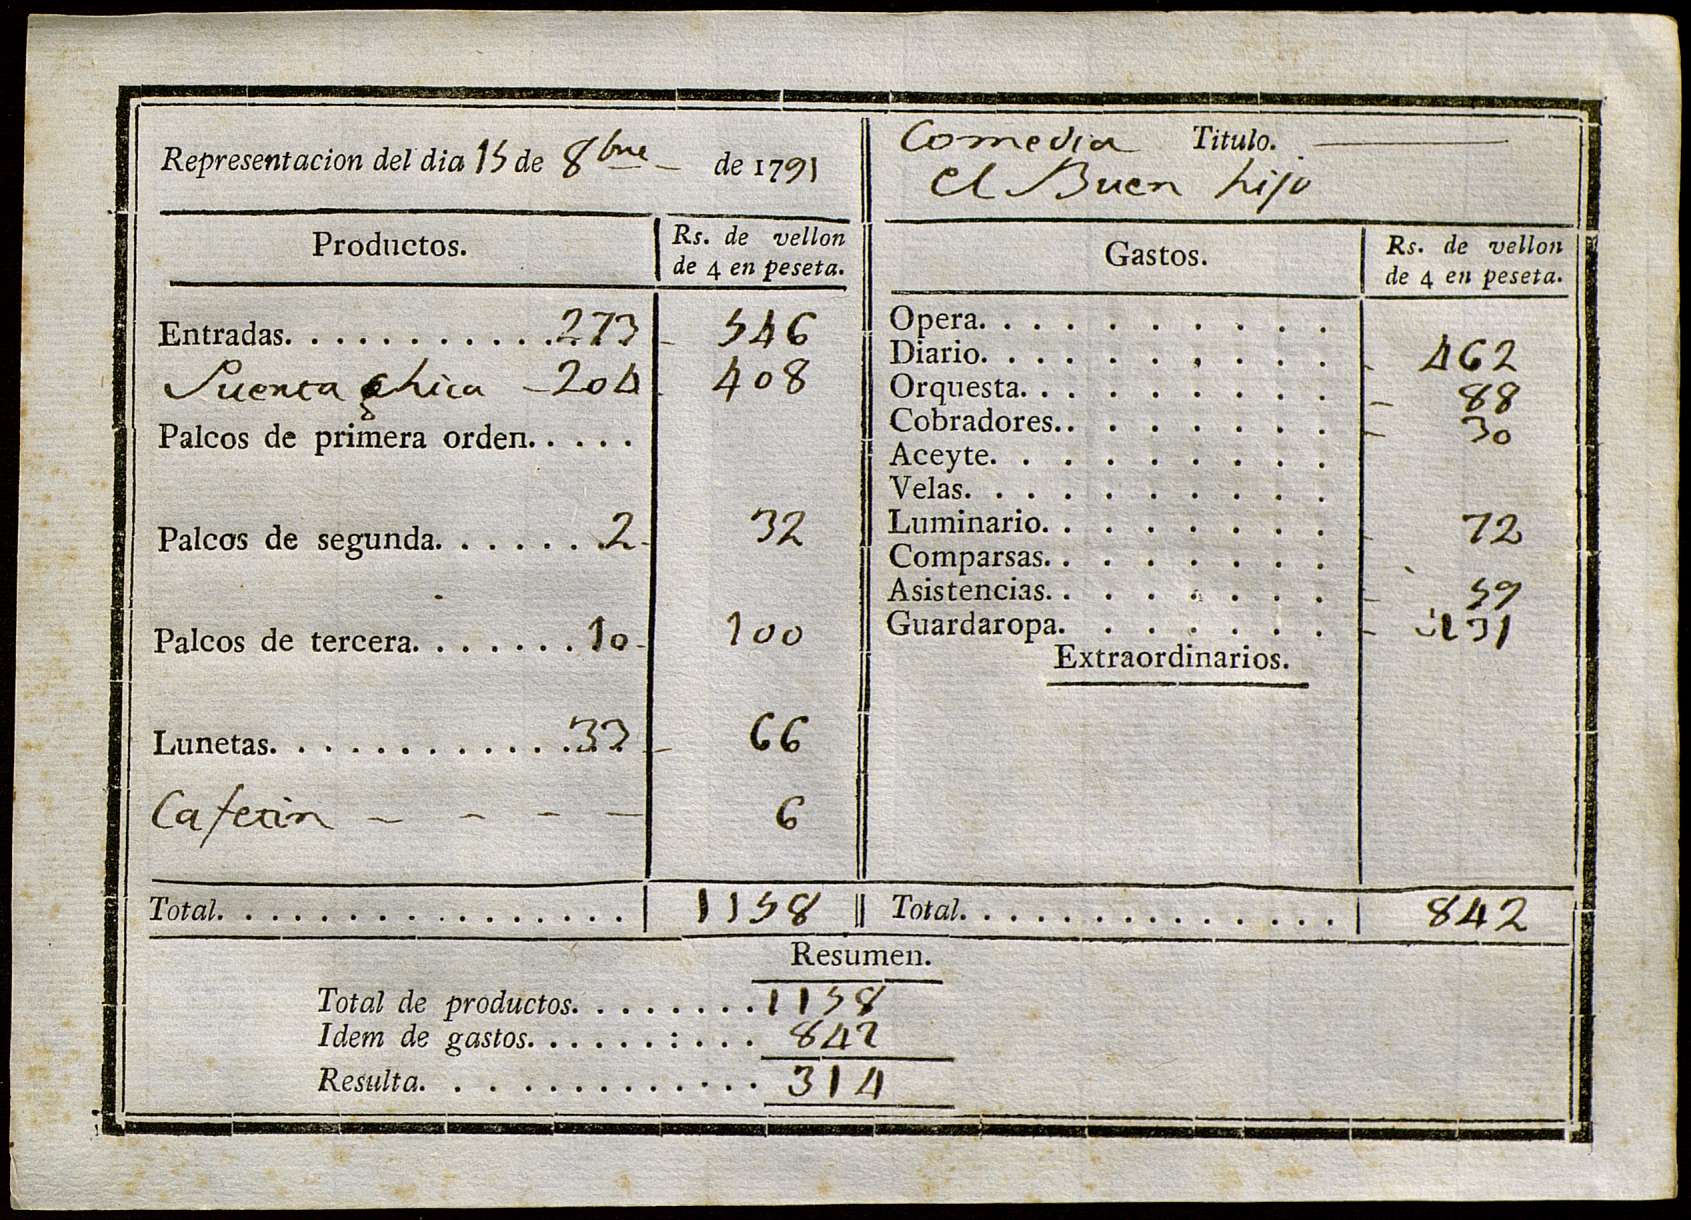 Representacion del dia 15 de 8bre de 1791
Comedia Titulo.
el Buen hijo
Productos.
Rs. de vellon
de 4 en peseta.
Entradas. . . . . . . . . . . . 273 546
Puerta chica - 204 408
Palcos de primera orden. . . . .
Palcos de segunda. . . . . . . 2 32
Palcos de tercera. . . . . . . 10 100
Lunetas. . . . . . . . . . . . . . 33 66
Cafetin - - - - 6
Total. . . . . . . . . . . . . . . . 1158
Gastos.
Rs. de vellon
de 4 en peseta.
Opera. . . . . . . . . .
Diario. . . . . . . . . . 462
Orquesta. . . . . . . . . 88
Cobradores. . . . . . . . 30
Aceyte. . . . . . . . . .
Velas. . . . . . . . . .
Luminario. . . . . . . . 72
Comparsas. . . . . . . .
Asistencias. . . . . . . . 59
Guardaropa. . . . . . . 131
Extraordinarios.
Total. . . . . . . . . . . . . . . 842
Resumen.
Total de productos. . . . . . . . 1158
Idem de gastos. . . . . . : . . . 842
Resulta. . . . . . . . . . . . . 314